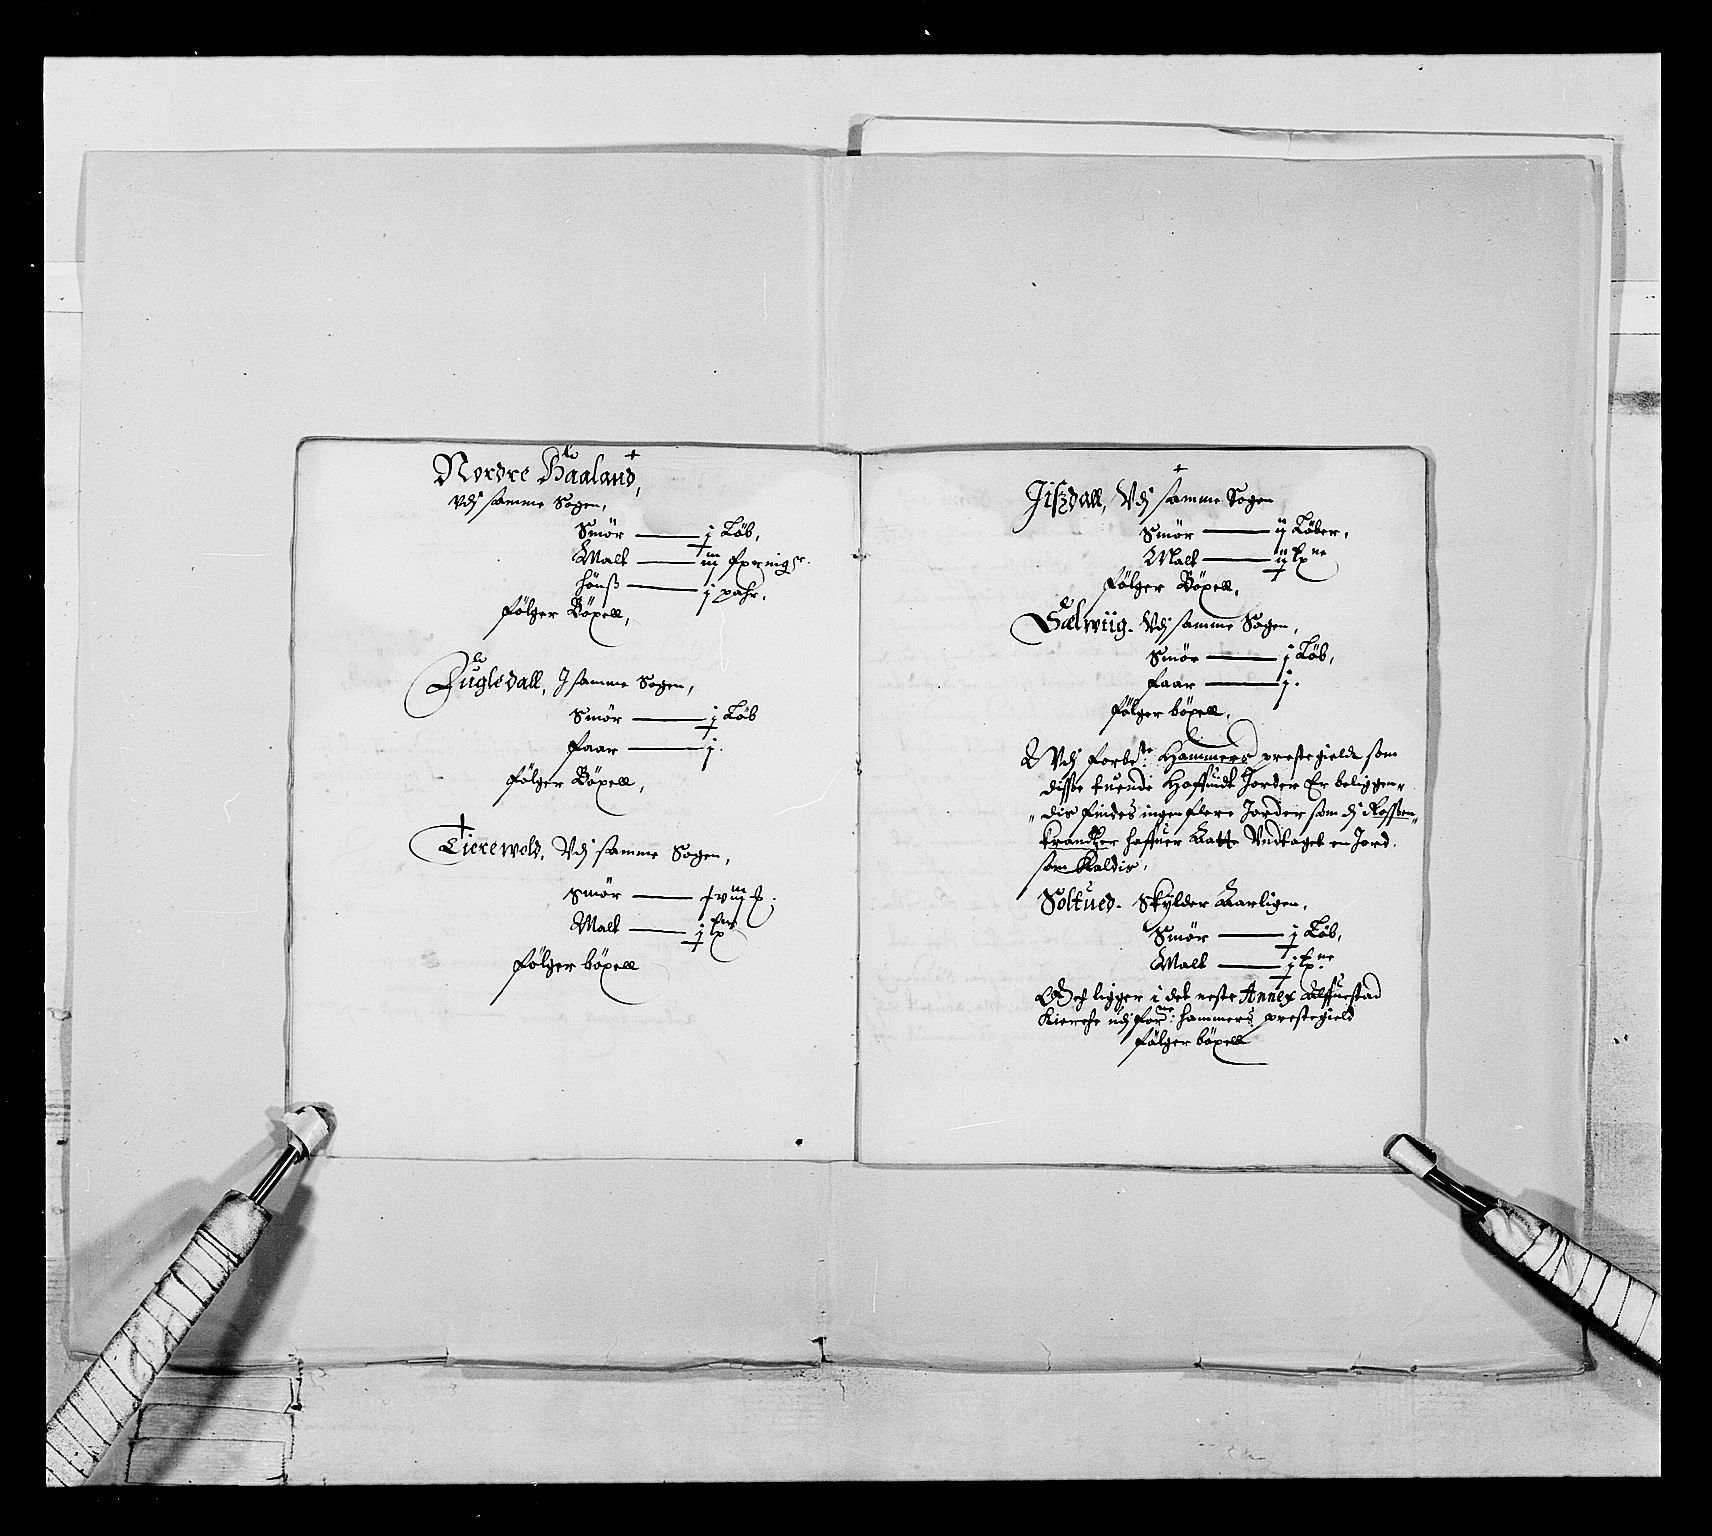 Nordre Haaland,
Vdj samme Sogen,
Smör j Löb,
Malt
hönß j pahr.
følger Böxell,
Fugledall, J samme Sogen,
Smör j Löb
faar j.
følger Böxell,
Tierewold, Vdj samme Sogen,
Smör
Malt j
følger böxell
Jißdall, Vdj samme Sogen
Smör ij Löber,
Malt ij
følger Böxell,
Sælwiig. Vdj samme Sogen,
Smör j Löb,
faar j.
følger böxell,
Vdj forbe: Hammers prestegieldt som
disse tuende Jorder Er beliggen„
„dis findes ingen flere Jorder som dj Rossen„
krandtzer haffuer Vndtaget en Jord,
som Kaldis,
Soltued. Skylder Aarligen,
Smör j Löb,
Malt j
Och ligger i det neste Annex
Kierche udj for: hammers prestegield
følger böxell